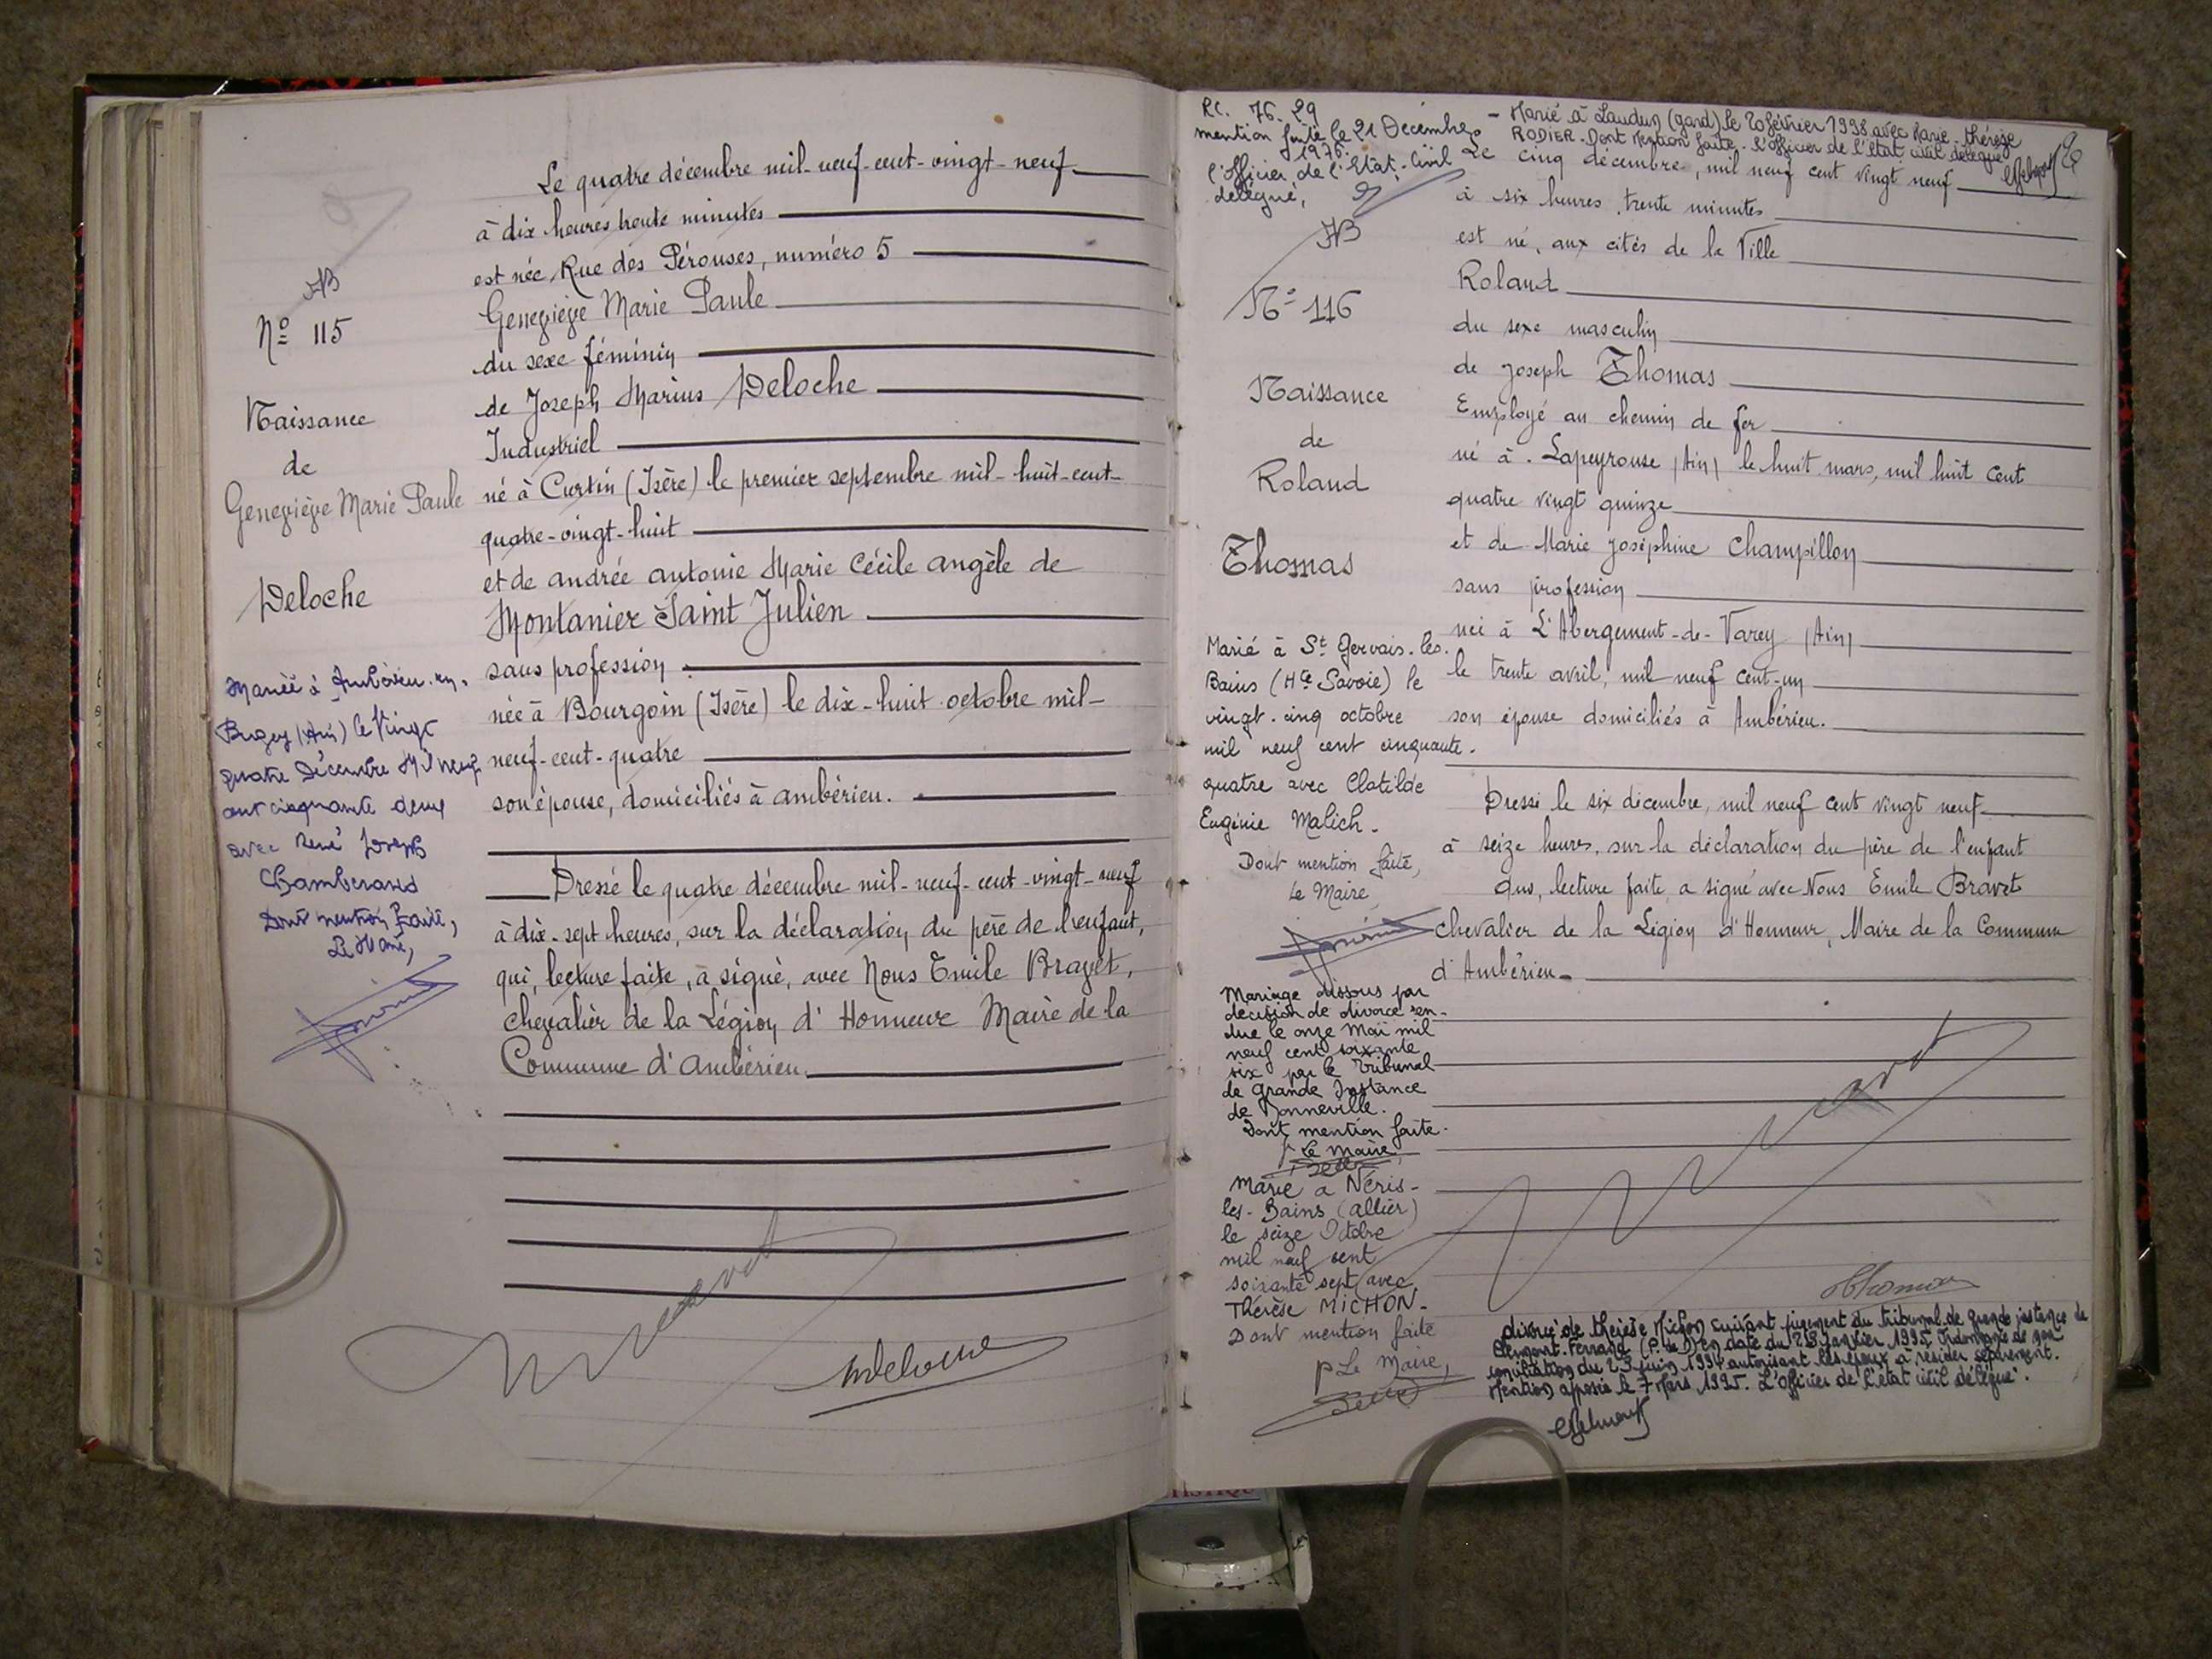 Le quatre décembre mil-neuf-cent-vingt-neuf
à dix heures trente minutes
est née, Rue des Pérouses, numéro 5
Geneviève Marie Paule
du sexe féminin
de Joseph Marius Deloche
Industriel
né à Curtin (Isère) le premier septembre mil-huit-cent-
quatre-vingt-huit
et de andrée antonie Marie Cécile angèle de
Montanier Saint Julien
sans profession
née à Bourgoin (Isère) le dix-huit octobre mil-
neuf-cent-quatre
son épouse, domiciliés à ambérieu.
Dressé le quatre décembre mil-neuf-cent-vingt-neuf
à dix-sept heures, sur la déclaration du père de l'enfant,
qui, lecture faite, a signé, avec Nous Emile Bravet,
Chevalier de la Légion d'Honneur Maire de la
Commune d'ambérieu.
AB
N° 115
Naissance
de
Geneviève Marie Paule
Deloche
Mariée à Ambérieu-en-
Bugey (Ain) le Vingt
quatre Décembre Mil neuf
cent cinquante deux
avec René Joseph
Chamberand
Dont mention faite,
Le Maire,
Bravet
Deloche
R.C. 76-29
mention faite le 21 Décembre
1976.
l'officier de l'Etat-Civil
délégué,
AB
N° 116
Naissance
de
Roland
Thomas
Marié à St Gervais-les-
Bains (Hte Savoie) le
vingt-cinq octobre
mil neuf cent cinquante-
quatre avec Clotilde
Eugénie Malich.
Dont mention faite,
Le Maire,
Mariage dissous par
décision de divorce ren-
due le onze Mai mil
neuf cent soixante
six par le Tribunal
de Grande Instance
de Bonneville.
Dont mention faite.
P Le Maire,
Marié à Néris-
les-Bains (allier)
le seize Octobre
mil neuf cent
soixante sept avec
Thérèse MICHON.
Dont mention faite
P Le Maire,
- Marié à Laudun (gard) le 20 février 1998 avec Marie-Thérèse
RODIER. Dont mention faite. L'officier de l'état civil délégué
Le cinq décembre, mil neuf cent vingt neuf
à six heures trente minutes
est né, aux cités de la Ville
Roland
du sexe masculin
de Joseph Thomas
Employé au chemin de fer
né à Lapeyrouse (Ain) le huit mars, mil huit cent
quatre vingt quinze
et de Marie Joséphine Champillon
sans profession
née à L'Abergement-de-Varey (Ain)
le trente avril, mil neuf cent-un
son épouse domiciliés à Ambérieu.
Dressé le six décembre, mil neuf cent vingt neuf
à seize heures, sur la déclaration du père de l'enfant
qui, lecture faite, a signé avec Nous Emile Bravet
Chevalier de la Légion d'Honneur, Maire de la Commune
d'Ambérieu
Bravet
Thomas
divorcé de Thérèse Michon suivant jugement du tribunal de grande instance de
Clermont-Ferrand (P. de D) en date du 23 janvier 1995. Ordonnance de non
conciliation du 23 juin 1994 autorisant les époux à résider séparément.
Mention apposée le 7 Mars 1995. L'officier de l'état civil délégué.